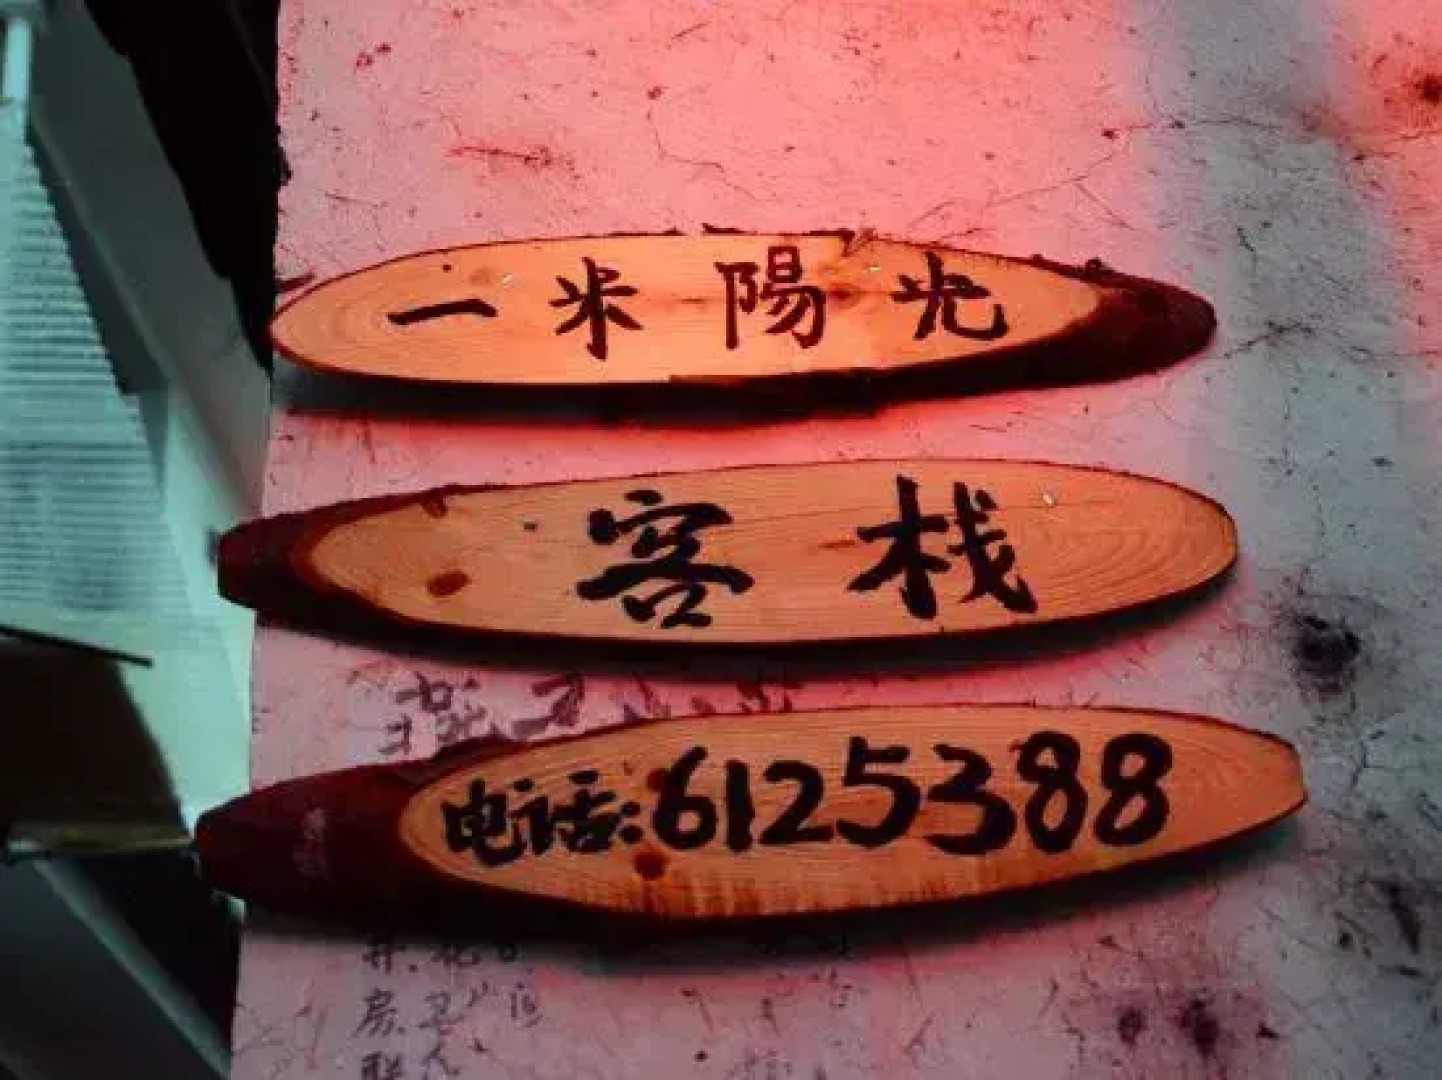 一米陽光
客栈
电话:6125388